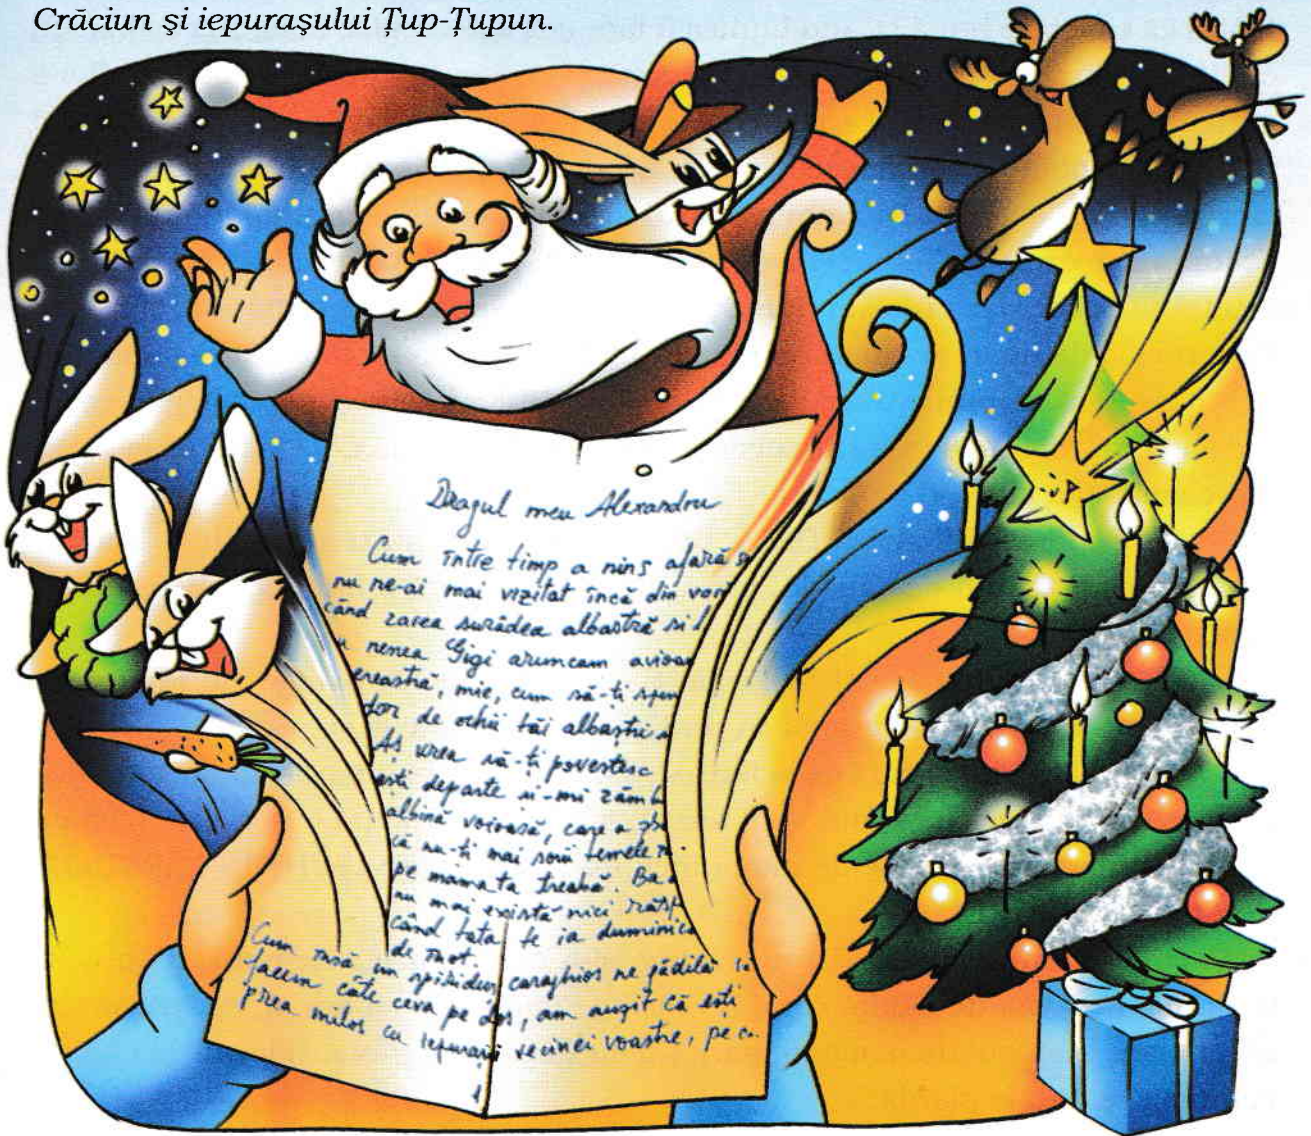 Crăciun şi iepuraşului Ţup-Ţupun.
Dragul meu Alexandru
Cum între timp a nins afară
nu ne-ai mai vizitat încă din
când zarea surâdea albastră și
nenea Gigi aruncam
mie, cum să-ți
dor de ochii tăi albaștri
Aș vrea să-ți povestesc
ești departe
albină voioasă, care a
că nu-ți mai scrii temele
pe mama ta treabă. Ba
nu mai există nici
când tata te ia
de moț.
Cum însă un spiriduș caraghios ne gâdilă
facem câte ceva pe dos, am auzit că ești
prea milos cu iepurașii vecinei voastre, pe